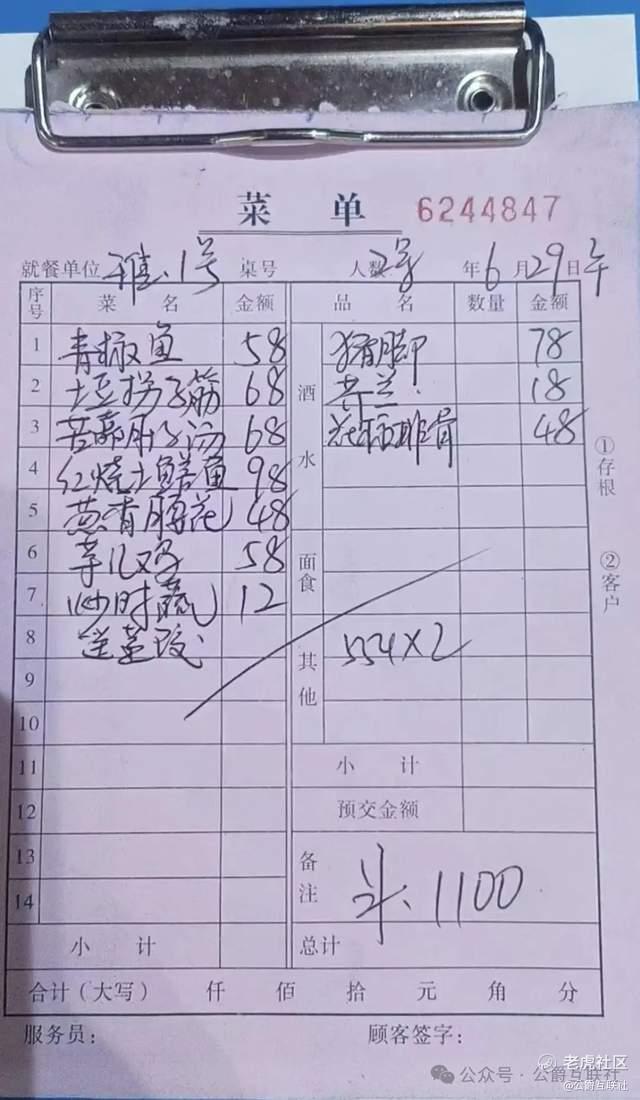 菜 单 6244847
就餐单位 雅.1号 桌号 人数 2桌 年6月29日午
序号 菜 名 金额 品 名 数量 金额
1 青椒鱼 58 酒水 猪脚 78
2 土豆拐子筋 68 芥兰 18
3 苦藠肚子汤 68 排骨 48
4 红烧土鳝鱼 98
5 葱香腰花 48
6 芋儿鸡 58 面食
7 炒时蔬 12
8 送 其他 554×2
9
10
11 小 计
12 预交金额
13 备注 1100
14
小 计 总计
合计(大写) 仟 佰 拾 元 角 分
服务员: 顾客签字:
①存根
②客户
老虎社区
公众号·公爵互联社
@公爵互联社